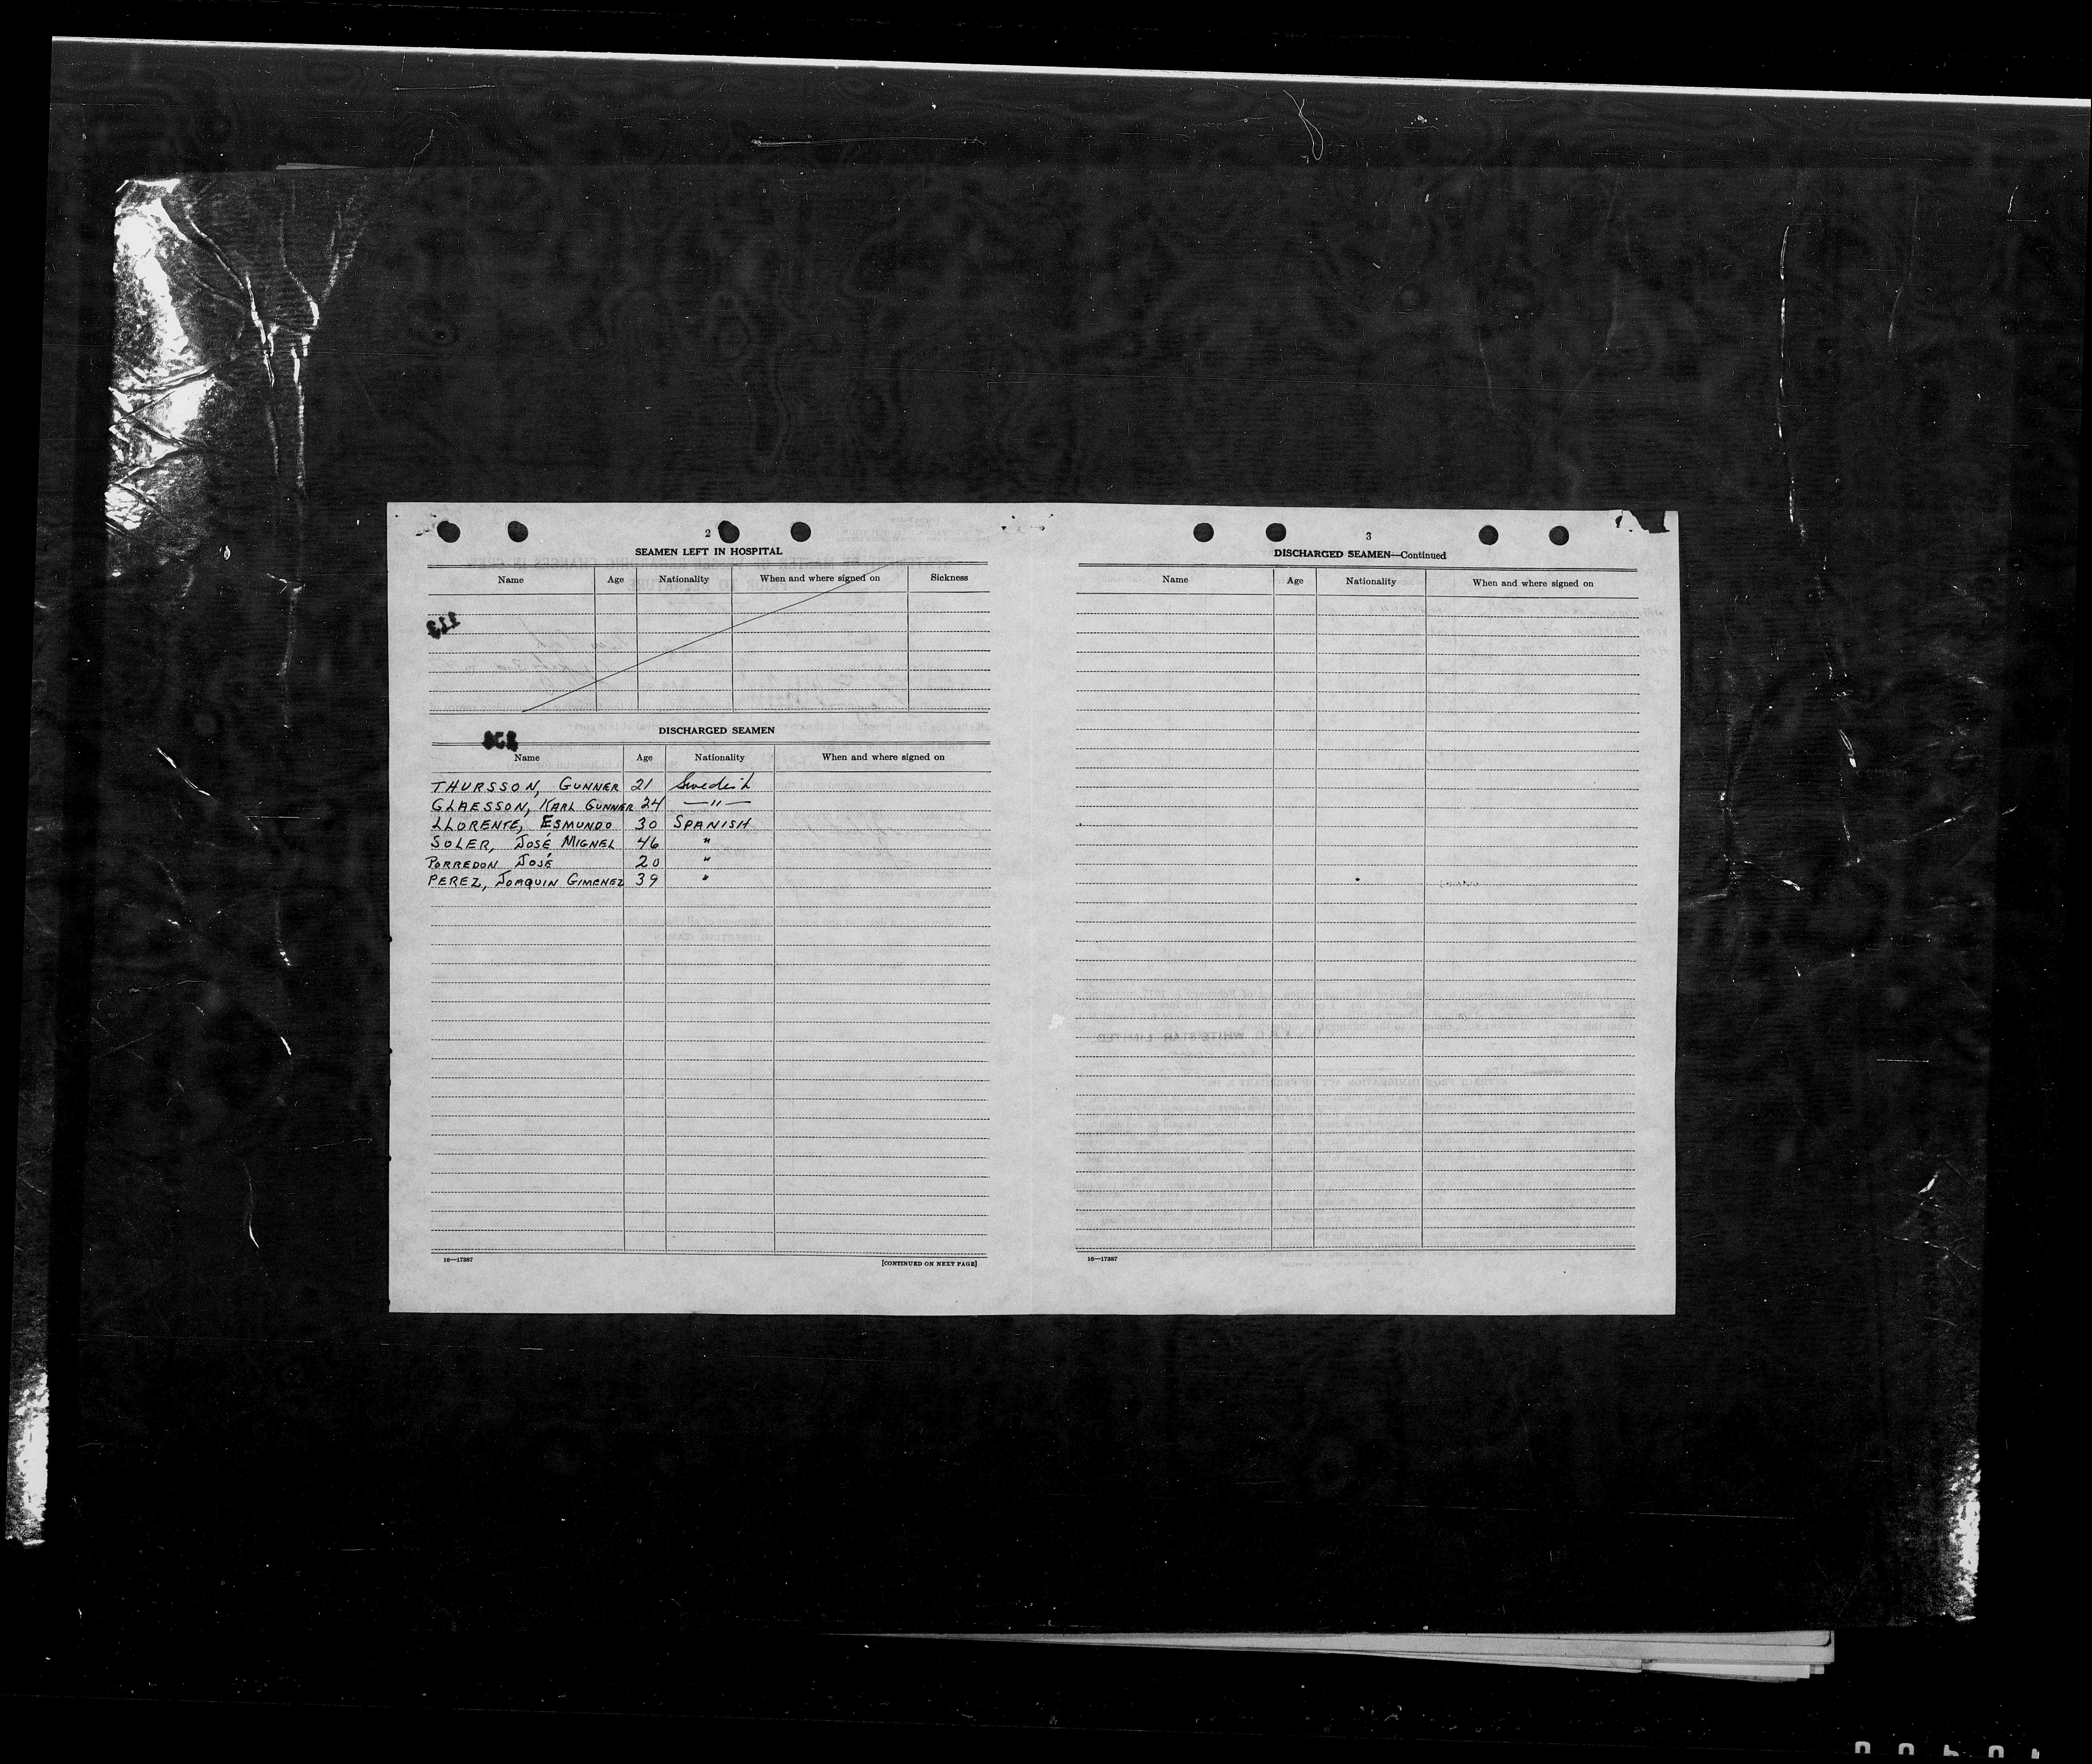 2
SEAMEN LEFT IN HOSPITAL
Name Age Nationality When and where signed on Sickness
113
DISCHARGED SEAMEN
Name Age Nationality When and where signed on
THURSSON, GUNNER 21 Swedish
GLAESSON, KARL GUNNER 24 —"—
LLORENTE, ESMUNDO 30 SPANISH
SOLER, JOSÉ MIGNEL 46 "
PORREDON JOSÉ 20 "
PEREZ, JOAQUIN GIMENEZ 39 "
16—17387
[CONTINUED ON NEXT PAGE]
3
DISCHARGED SEAMEN—Continued
Name Age Nationality When and where signed on
16—17387